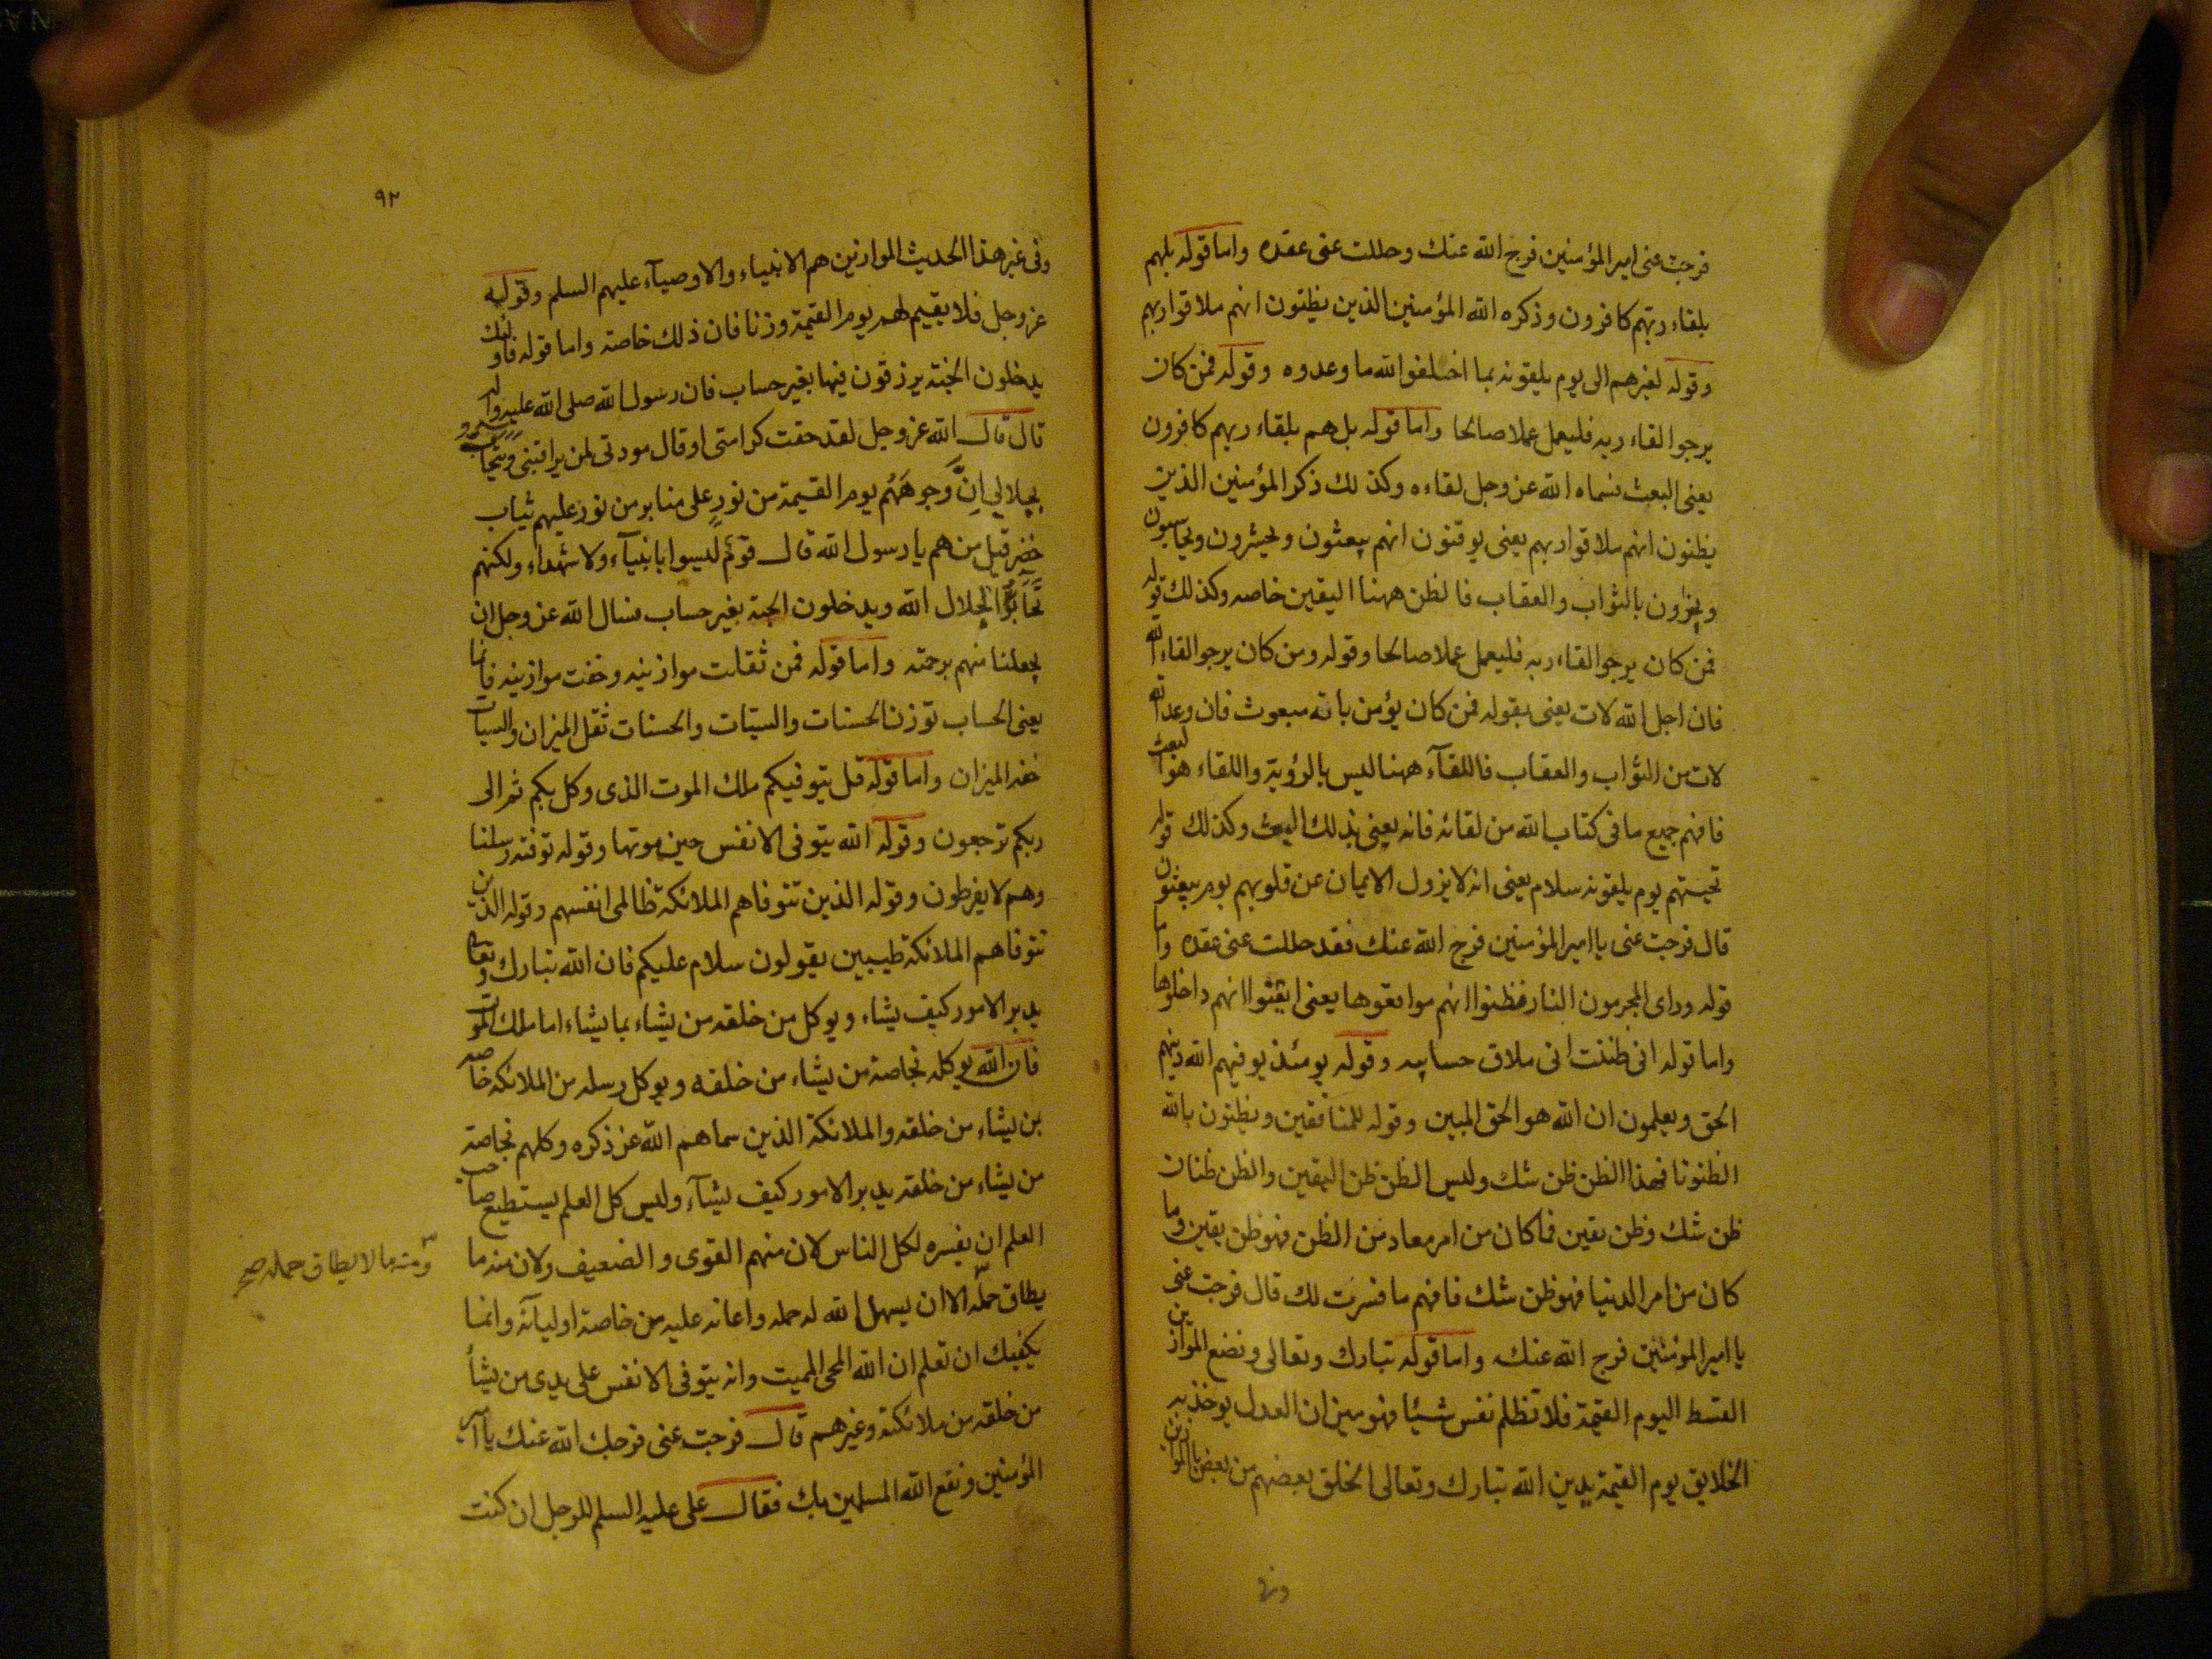 فرجت عنى امير المؤمنين فرج الله عنك وحللت عنى عقده واما قوله بلهم
بلقاء ربهم كافرون وذكره الله المؤمنين الذين يظنون انهم ملاقوا ربهم
وقوله لغيرهم الى يوم يلقونه بما اخلفوا الله ما وعدوه وقوله فمن كان
يرجوا لقاء ربه فليعمل عملا صالحا واما قوله بل هم بلقاء ربهم كافرون
يعنى البعث فسماه الله عز وجل لقاءه وكذلك ذكر المؤمنين الذين
يظنون انهم ملاقوا ربهم يعنى يوقنون انهم يبعثون ويحشرون ويحاسبون
ويجزون بالثواب والعقاب فالظن ههنا اليقين خاصه وكذلك قوله
فمن كان يرجوا لقاء ربه فليعمل عملا صالحا وقوله ومن كان يرجوا لقاء الله
فان اجل الله لات يعنى بقوله فمن كان يؤمن بانه مبعوث فان وعد الله
لات من الثواب والعقاب فاللقآء ههنا ليس بالرؤية واللقاء هو البعث
فافهم جميع ما فى كتاب الله من لقائه فانه يعنى بذلك البعث وكذلك قوله
تحيتهم يوم يلقونه سلام يعنى انه لا يزول الايمان عن قلوبهم يوم يبعثون
قال فرجت عنى يا امير المؤمنين فرج الله عنك فقد حللت عنى عقده واما
قوله وراى المجرمون النار فظنوا انهم مواقعوها يعنى ايقنوا انهم داخلوها
واما قوله انى ظننت انى ملاق حسابيه وقوله يومئذ يوفيهم الله دينهم
الحق ويعلمون ان الله هو الحق المبين وقوله للمنافقين ويظنون بالله
الظنونا فهذا الظن ظن شك وليس الظن ظن اليقين والظن ظنان
ظن شك وظن يقين فما كان من امر معاد من الظن فهو ظن يقين وما
كان من امر الدنيا فهو ظن شك فافهم ما فسرت لك قال فرجت عنى
يا امير المؤمنين فرج الله عنك واما قوله تبارك وتعالى ونضع الموازين
القسط اليوم القيمة فلا تظلم نفس شيئا فهو ميزان العدل يوخذ به
الخلايق يوم القيمة يدين الله تبارك وتعالى الخلق بعضهم من بعض بالموازين
وفى
٩٢
وفى غير هذا الحديث الموازين هم الانبياء والاوصيآء عليهم السلم وقوله
عز وجل فلا يقيم لهم يوم القيمة وزنا فان ذلك خاصة واما قوله فاولئك
يدخلون الجنة يرزقون فيها بغير حساب فان رسول الله صلى الله عليه واله
قال قال الله عز وجل لقد حقت كرامتى او قال مودتى لمن يراقبنى ويتحاب
بجلالي ان وجوههم يوم القيمة من نور على منابر من نور عليهم ثياب
خضر قيل من هم يا رسول الله قال قوم ليسوا بانبيآء ولا شهداء ولكنهم
تحابوا لجلال الله ويدخلون الجنة بغير حساب فسال الله عز وجل ان
يجعلنا منهم برحمته واما قوله فمن ثقلت موازينه وخفت موازينه فانما
يعنى الحساب توزن الحسنات والسيئات والحسنات ثقل الميزان والسيآت
خفه الميزان واما قوله قل يتوفيكم ملك الموت الذى وكل بكم ثم الى
ربكم ترجعون وقوله الله يتوفى الانفس حين موتها وقوله توفته رسلنا
وهم لا يفرطون وقوله الذين تتوفاهم الملائكة ظالمى انفسهم وقوله الذين
تتوفاهم الملائكة طيبين يقولون سلام عليكم فان الله تبارك وتعالى
يدبر الامور كيف يشاء ويوكل من خلقه من يشاء بما يشاء اما ملك الموت
فان الله يوكله بخاصة من يشاء من خلقه ويوكل رسله من الملائكة خاصه
بمن يشاء من خلقه والملائكة الذين سماهم الله عز ذكره وكلهم بخاصة
من يشاء من خلقه يدبر الامور كيف يشآء وليس كل العلم يستطيع صاحب
العلم ان يفسره لكل الناس لان منهم القوى والضعيف ولان منه ما
يطاق حمله الا ان يسهل الله له حمله واعانه عليه من خاصة اوليائه وانما
يكفيك ان تعلم ان الله المحى المميت وانه يتوفى الانفس على يدى من يشأ
من خلقه من ملائكته وغيرهم قال فرجت عنى فرجك الله عنك يا امير
المؤمنين ونفع الله المسلمين بك فقال على عليه السلم للرجل ان كنت
ومنه ما لا يطاق حمله صح